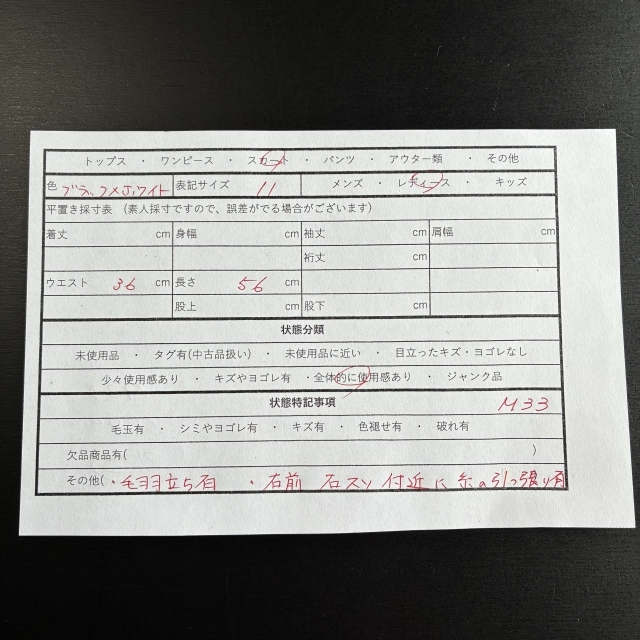 トップス ・ ワンピース ・ スカート ・ パンツ ・ アウター類 ・ その他
色 ブラック×ホワイト 表記サイズ 11 メンズ ・ レディース ・ キッズ
平置き採寸表 (素人採寸ですので、誤差がでる場合がございます)
着丈 cm 身幅 cm 袖丈 cm 肩幅 cm
裄丈 cm
ウエスト 36 cm 長さ 56 cm
股上 cm 股下 cm
状態分類
未使用品 ・ タグ有(中古品扱い) ・ 未使用品に近い ・ 目立ったキズ・ヨゴレなし
少々使用感あり ・ キズやヨゴレ有 ・全体的に使用感あり ・ ジャンク品
状態特記事項 M33
毛玉有 ・ シミやヨゴレ有 ・ キズ有 ・ 色褪せ有 ・ 破れ有
欠品商品有( )
その他(・毛羽立ち有 ・右前 右スソ付近に糸の引っ張り有